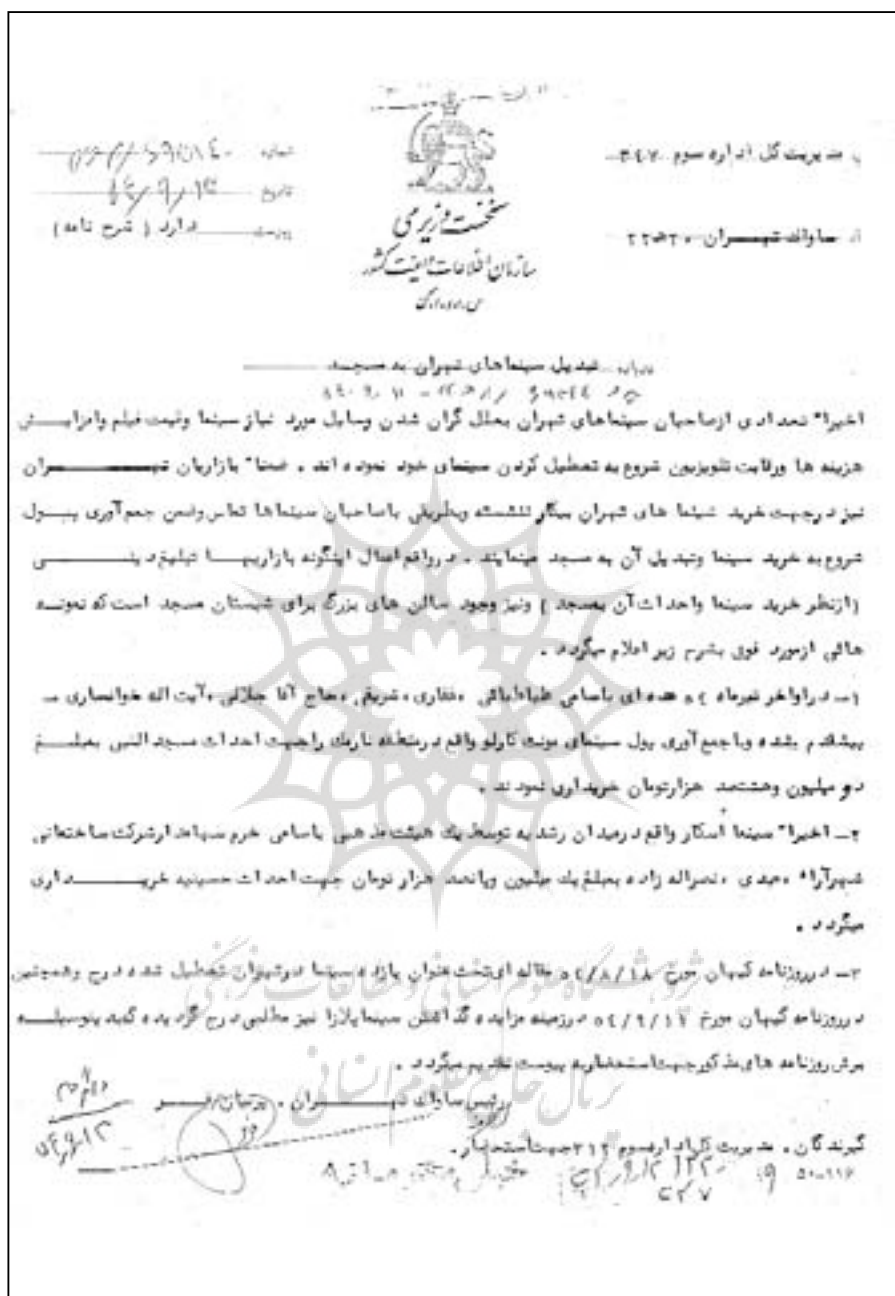 مدیریت کل اداره سوم ۳٤۷
شماره
تاریخ
از ساواک تهران ۲۲ه۲۰
دارد ( شرح نامه )
نخست وزیری
سازمان اطلاعات و امنیت کشور
درباره تبدیل سینماهای تهران به مسجد
اخیرا" تعدادی ازصاحبان سینماهای تهران بعلل گران شدن وسایل مورد نیاز سینما وقیمت فیلم وافزایش
هزینه ها ورقابت تلویزیون شروع به تعطیل کردن سینمای خود نموده اند . ضمنا" بازاریان تهران
نیز درجهت خرید سینما های تهران بیکار ننشسته وبطریقی باصاحبان سینماها تماس وضمن جمع آوری پول
شروع به خرید سینما وتبدیل آن به مسجد مینمایند . درواقع اعمال اینگونه بازاریها تبلیغ دینی
(ازنظر خرید سینما واحداث آن بمسجد ) ونیز وجود سالن های بزرگ برای شبستان مسجد است که نمونه
هائی ازمورد فوق بشرح زیر اعلام میگردد .
۱ـ دراواخر تیرماه ٥٤ عده ای باسامی طباطبائی ، غفاری ، شریفی ، حاج آقا جلالی ، آیت اله خوانساری ـ
پیشقدم بشده وباجمع آوری پول سینمای مونت کارلو واقع درمنطقه نارمک راجهت احداث مسجد النبی بمبلغ
دو میلیون وهشتصد هزارتومان خریداری نمودند .
۲ـ اخیرا" سینما اسکار واقع درمیدان رشدیه توسط یک هیئت مذهبی باسامی خرم سهامدارشرکت ساختمانی
شهرآرا" ، عبدی ، نصراله زاده بمبلغ یک میلیون وپانصد هزار تومان جهت احداث حسینیه خریداری
میگردد .
۳ـ درروزنامه کیهان مورخ ٥٤/۸/۱۸ مقاله ای تحت عنوان یازده سینما درتهران تعطیل شده درج وهمچنین
درروزنامه کیهان مورخ ٥٤/۹/۱۲ درزمینه مزایده گذاشتن سینما پلازا نیز مطلبی درج گردیده که بدینوسیله
برش روزنامه های مذکورجهت استحضاربه پیوست تقدیم میگردد .
رئیس ساواک تهران . پرنیان فر
گیرندگان . مدیریت کل اداره سوم ۳۱۲ جهت استحضار .
۵۰-۱۱۶
پژوهشگاه علوم انسانی و مطالعات فرهنگی
پرتال جامع علوم انسانی